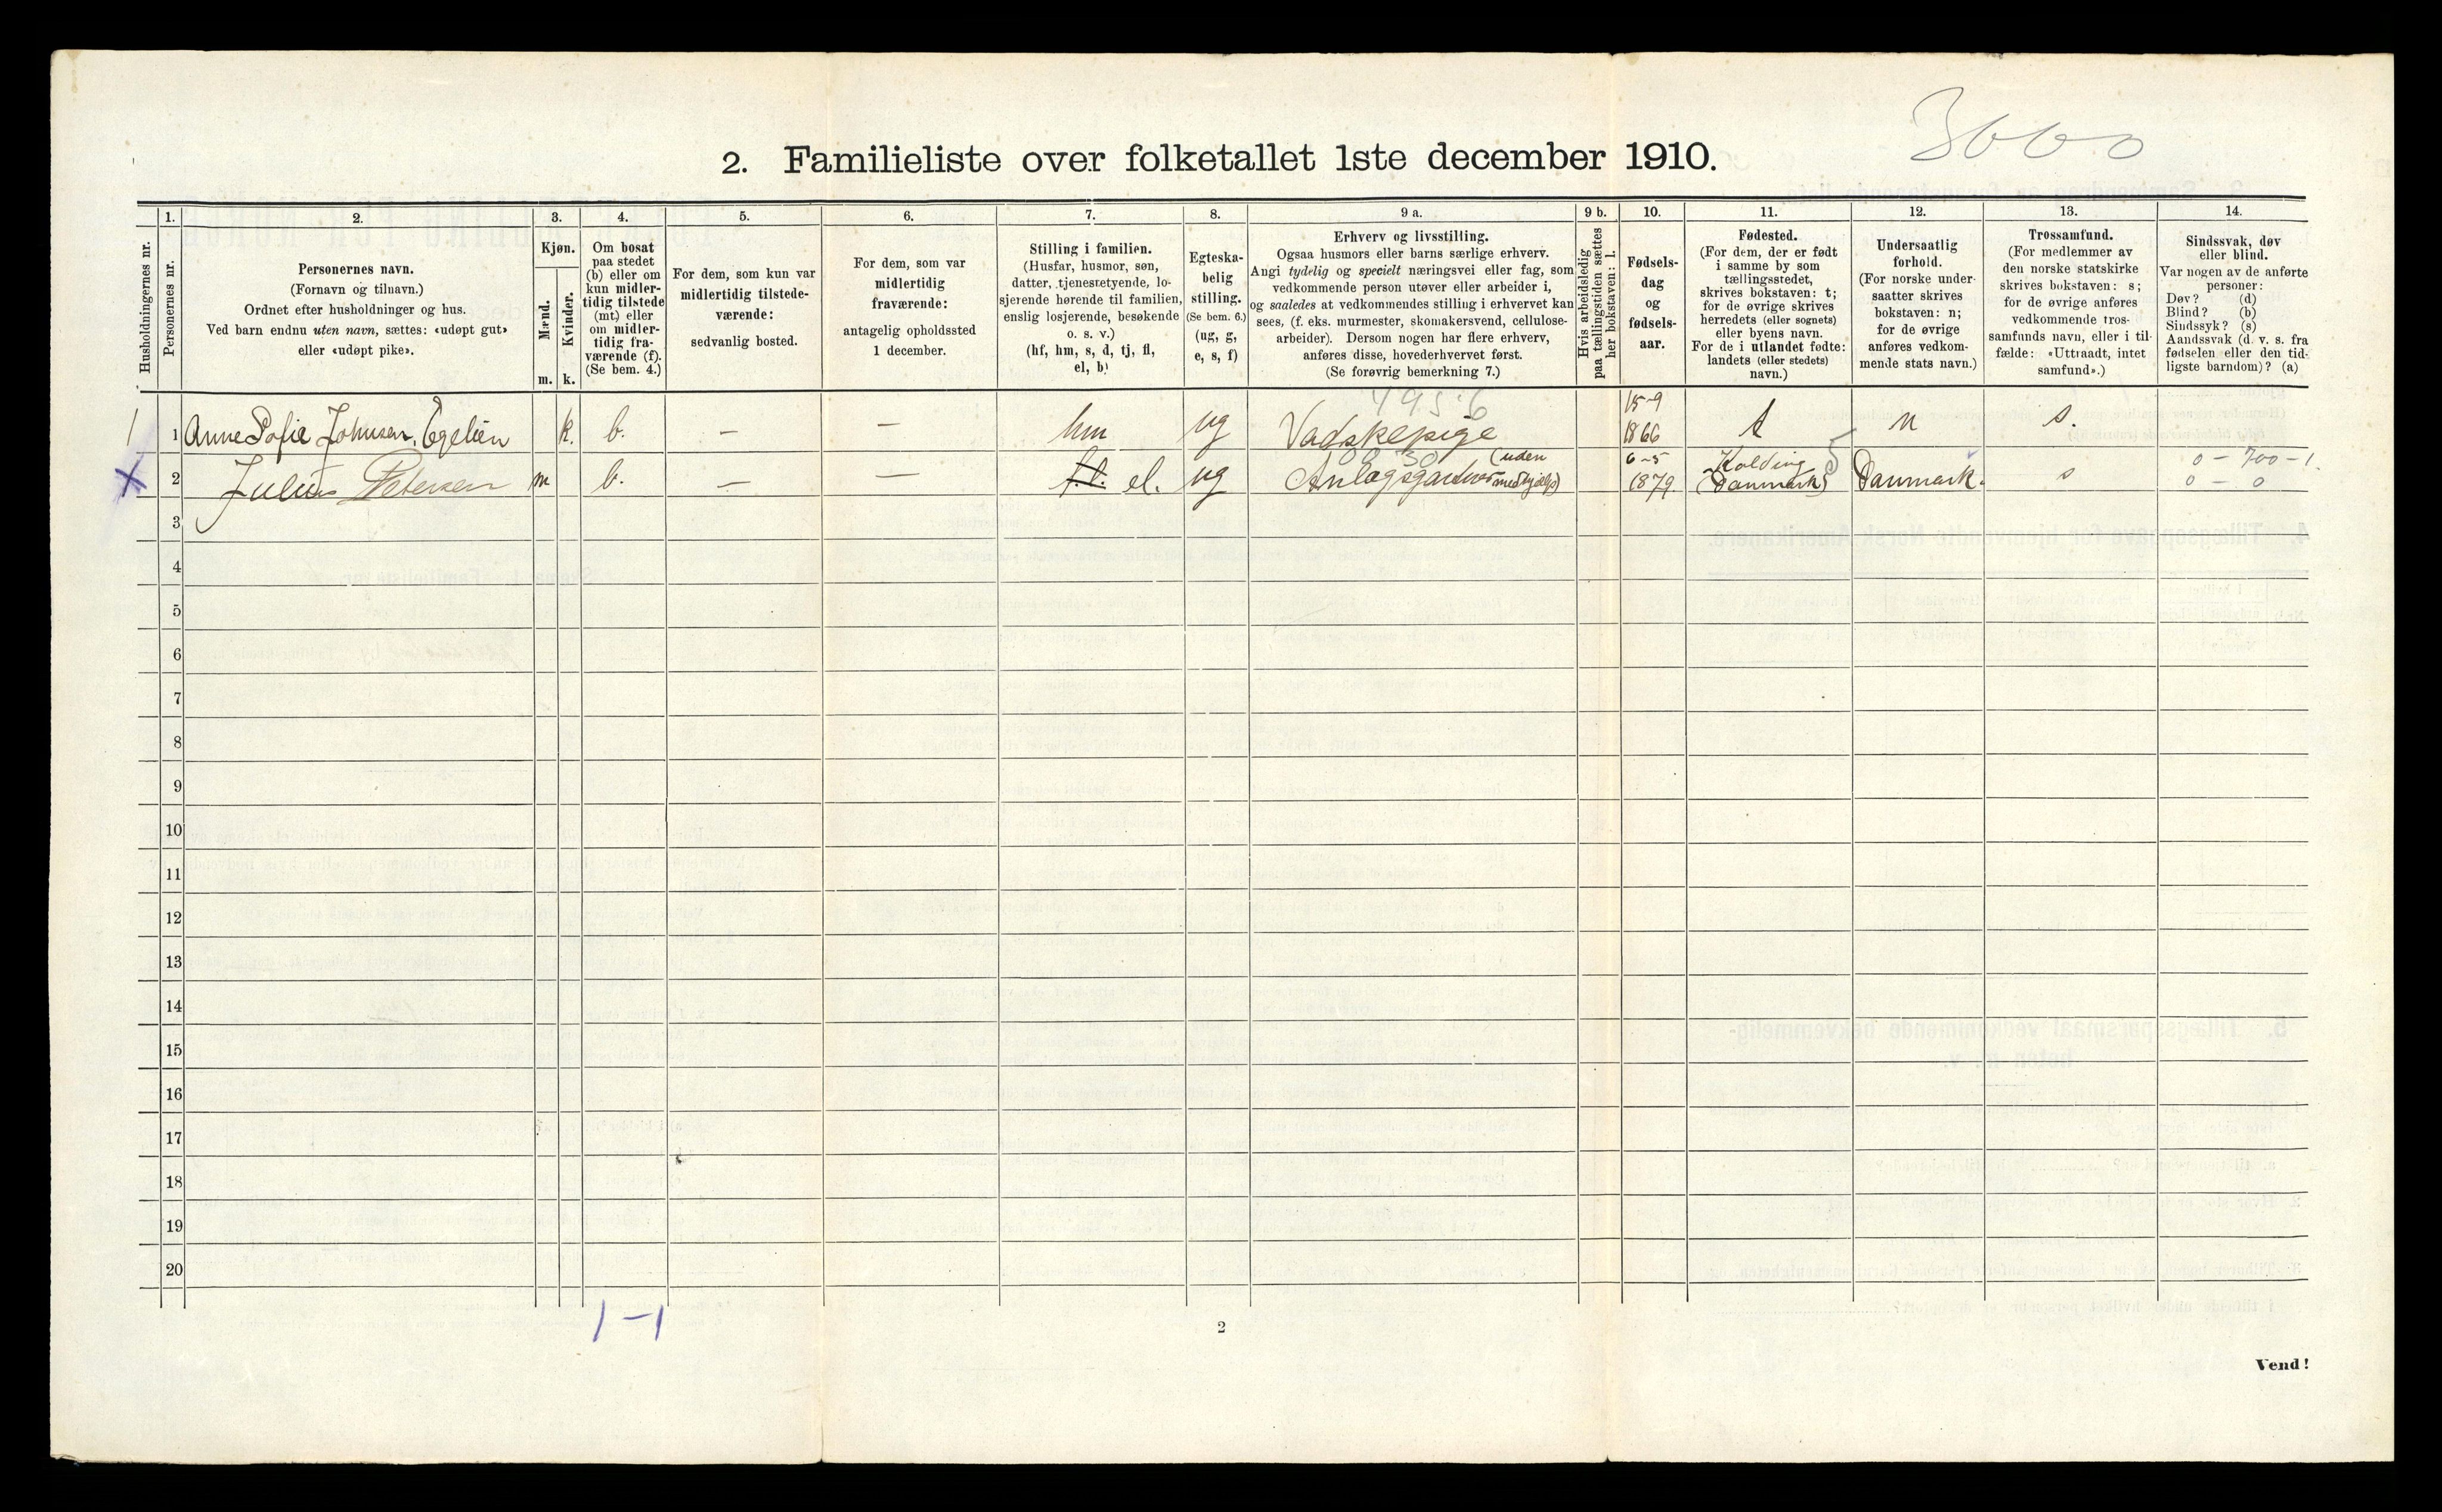 3660
2. Familieliste over folketallet 1ste december 1910.
Husholdningernes nr.
1.
Personernes nr.
2.
Personernes navn.
(Fornavn og tilnavn.)
Ordnet efter husholdninger og hus.
Ved barn endnu uten navn, sættes: «udøpt gut»
eller «udøpt pike».
3.
Kjøn.
Mænd.
Kvinder.
m. k.
4.
Om bosat
paa stedet
(b) eller om
kun midler-
tidig tilstede
(mt) eller
om midler-
tidig fra-
værende (f).
(Se bem. 4.)
5.
For dem, som kun var
midlertidig tilstede-
værende:
sedvanlig bosted.
6.
For dem, som var
midlertidig
fraværende:
antagelig opholdssted
1 december.
7.
Stilling i familien.
(Husfar, husmor, søn,
datter, tjenestetyende, lo-
sjerende hørende til familien,
enslig losjerende, besøkende
o. s. v.)
(hf, hm, s, d, tj, fl,
el, b)
8.
Egteska-
belig
stilling.
(Se bem. 6.)
(ug, g,
e, s, f)
9 a.
Erhverv og livsstilling.
Ogsaa husmors eller barns særlige erhverv.
Angi tydelig og specielt næringsvei eller fag, som
vedkommende person utøver eller arbeider i,
og saaledes at vedkommendes stilling i erhvervet kan
sees, (f. eks. murmester, skomakersvend, cellulose-
arbeider). Dersom nogen har flere erhverv,
anføres disse, hovederhvervet først.
(Se forøvrig bemerkning 7.)
9 b.
Hvis arbeidsledig
paa tællingstiden sættes
her bokstaven: l.
10.
Fødsels-
dag
og
fødsels-
aar.
11.
Fødested.
(For dem, der er født
i samme by som
tællingsstedet,
skrives bokstaven: t;
for de øvrige skrives
herredets (eller sognets)
eller byens navn.
For de i utlandet fødte:
landets (eller stedets)
navn.)
12.
Undersaatlig
forhold.
(For norske under-
saatter skrives
bokstaven: n;
for de øvrige
anføres vedkom-
mende stats navn.)
13.
Trossamfund.
(For medlemmer av
den norske statskirke
skrives bokstaven: s;
for de øvrige anføres
vedkommende tros-
samfunds navn, eller i til-
fælde: «Uttraadt, intet
samfund».)
14.
Sindssvak, døv
eller blind.
Var nogen av de anførte
personer:
Døv? (d)
Blind? (b)
Sindssyk? (s)
Aandssvak (d. v. s. fra
fødselen eller den tid-
ligste barndom)? (a)
1 1 Anne Sofie Johnsen. Egelien k. b. — — hm ug Vadskepige 15-9 1866 t n s.
X 2 Julius Petersen m b. — — f.l. el. ug Anlægsgartner (uden medhjælp) 6-5 1879. Kolding (Danmark) Danmark. s 0 - 700 - 1.
0 - 0
3
4
5
6
7
8
9
10
11
12
13
14
15
16
17
18
19
20
1-1
2
Vend!